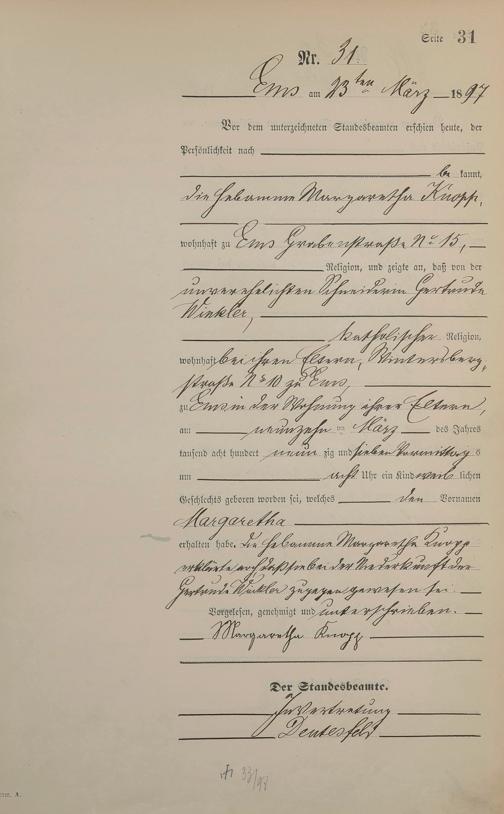 Seite 31
Nr. 31.
Ems am 23ten März 1897
Vor dem unterzeichneten Standesbeamten erschien heute, der
Persönlichkeit nach
be kannt,
die Hebamme Margaretha Knopp,
wohnhaft zu Ems Grabenstraße No 15,
Religion, und zeigte an, daß von der
unverehelichten Schneiderin Gertrude
Winkler,
katholischer Religion,
wohnhaft bei ihren Eltern, Wintersberg-
straße No 10 zu Ems,
zu Ems in der Wohnung ihrer Eltern,
am neunzehn ten März des Jahres
tausend acht hundert neun zig und sieben Vormittag s
um acht Uhr ein Kind weib lichen
Geschlechts geboren worden sei, welches den Vornamen
Margaretha
erhalten habe. Die Hebamme Margaretha Knopp
erklärte noch daß sie bei der Niederkunft der
Gertrude Winkler zugegen gewesen sei.
Vorgelesen, genehmigt und unterschrieben.
Margaretha Knopp
Der Standesbeamte.
In Vertretung
Deutesfeld
33/97